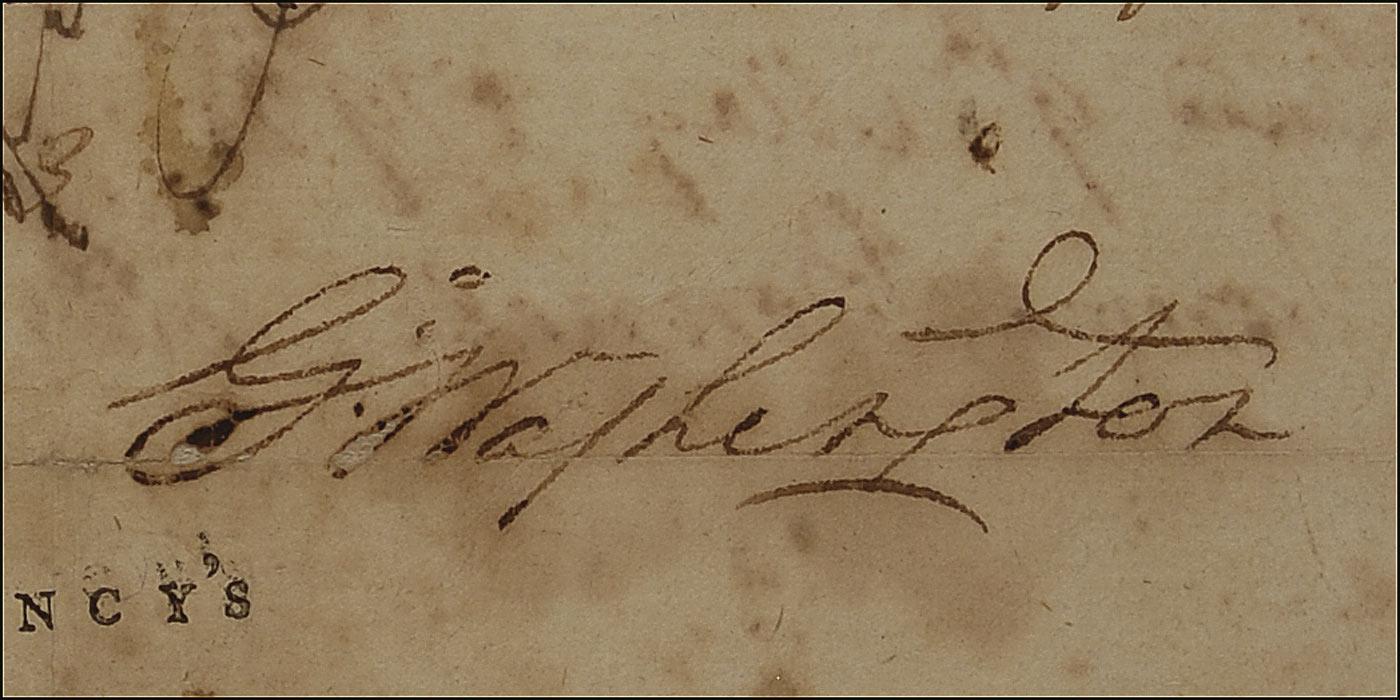 G: Washington
NCY'S